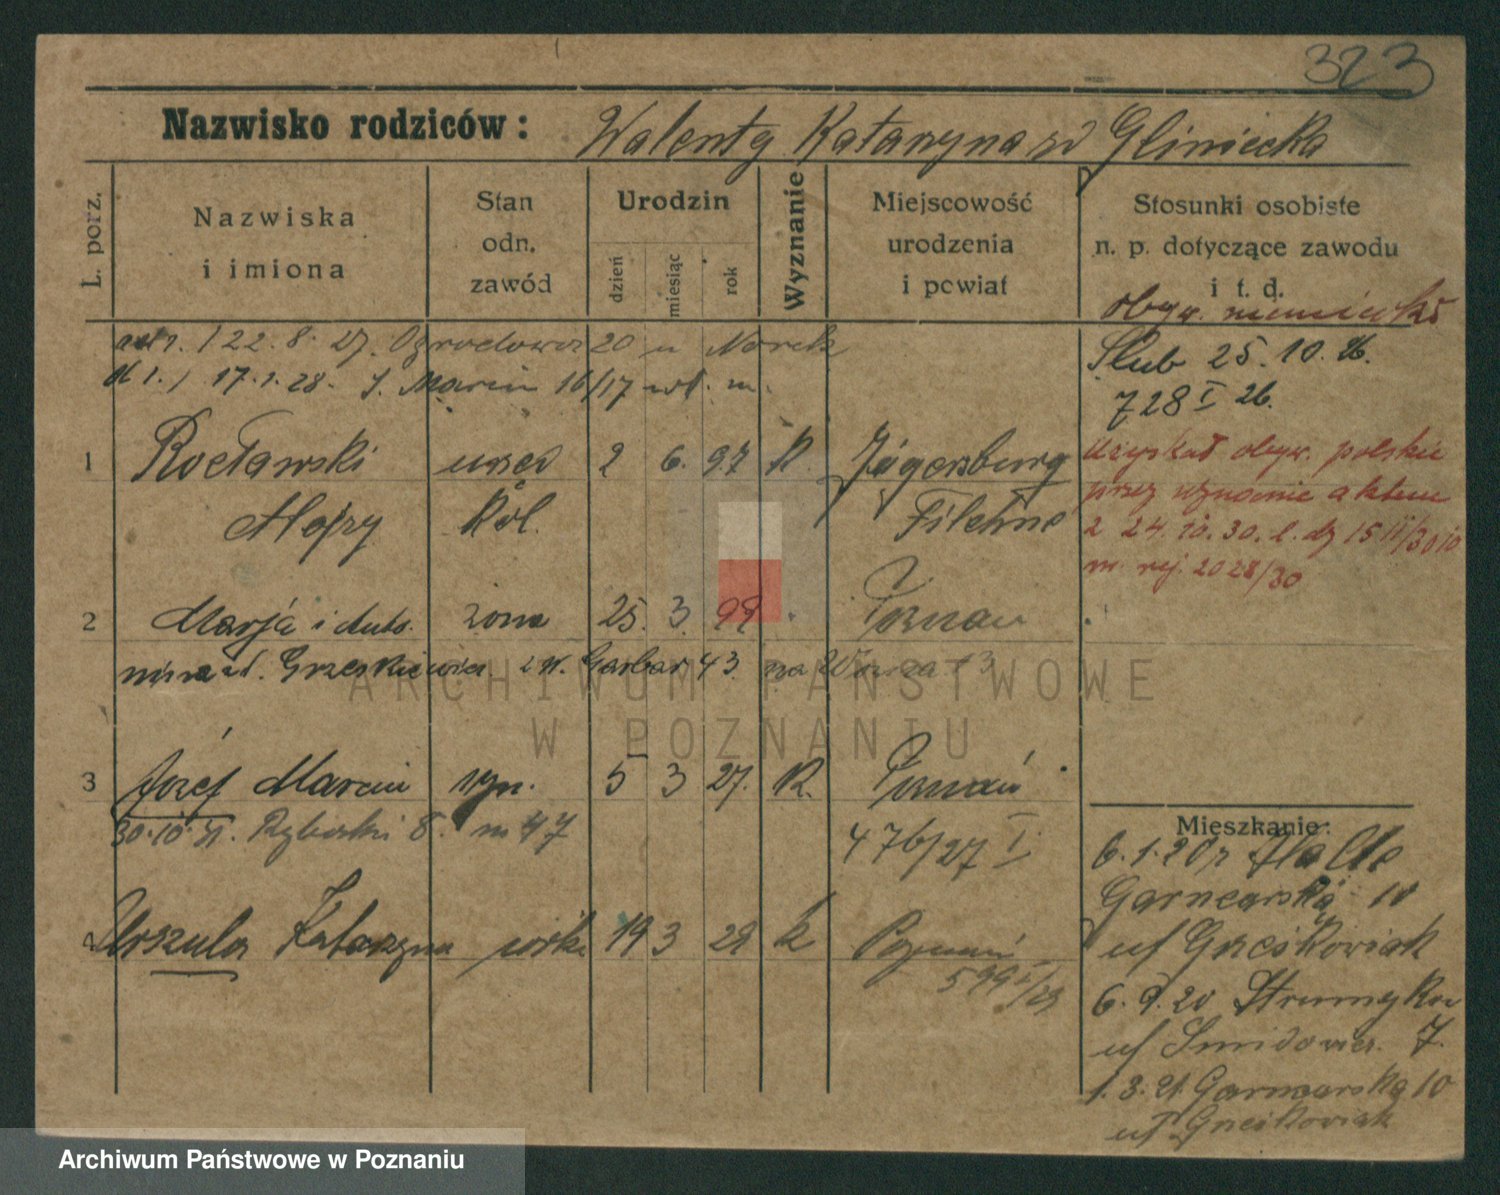 323
Nazwisko rodziców: Walenty Katarzyna zd Gliniecka
L. porz.
Nazwiska i imiona
Stan odn. zawód
Urodzin
dzień miesiąc rok
Wyznanie
Miejscowość urodzenia i powiat
Stosunki osobiste n. p. dotyczące zawodu i t. d.
obyw. niemieckie
22.8.27. Ogrodowa 20 u Norek
17.1.28. S. Marcin 16/17
Ślub 25.10.26.
728 I 26.
1 Rocławski 2 6. 97 K. Jägersburg
Alojzy kol. Filehne
Uzyskał obyw. polskie
przez wznanie aktem
2 24.10.30. l. dz 15 II/30
nr. rej. 2028/30
2 Marja żona 25. 3. 99 Poznań
Garbar 43
3 Józef Marcin syn. 5 3 27. K. Poznań
30.10.31. Rybaki 8. m 47
476/27 I
4 Urszula Katarzyna córka 19 3 29 k Poznań
599 I/29
Mieszkanie:
6.1.20 z Halle
Garncarska 10
uf Grześkowiak
6.9.20 Strumykowa
uf Smidowicz. 7.
1.3.21 Garncarska 10
uf Grześkowiak
ARCHIWUM PAŃSTWOWE
W POZNANIU
Archiwum Państwowe w Poznaniu